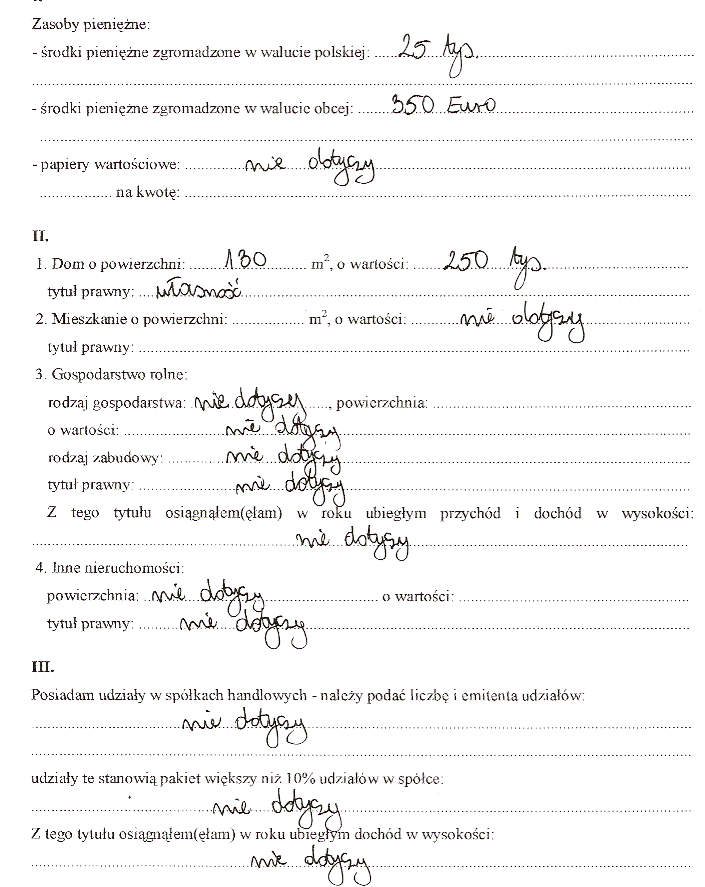 Zasoby pieniężne:
- środki pieniężne zgromadzone w walucie polskiej: 25 tys.
- środki pieniężne zgromadzone w walucie obcej: 350 Euro
- papiery wartościowe: nie dotyczy
na kwotę:
II.
1. Dom o powierzchni: 130 m², o wartości: 250 tys.
tytuł prawny: własność
2. Mieszkanie o powierzchni: m², o wartości: nie dotyczy
tytuł prawny:
3. Gospodarstwo rolne:
rodzaj gospodarstwa: nie dotyczy, powierzchnia:
o wartości: nie dotyczy
rodzaj zabudowy: nie dotyczy
tytuł prawny: nie dotyczy
Z tego tytułu osiągnąłem(ęłam) w roku ubiegłym przychód i dochód w wysokości:
nie dotyczy
4. Inne nieruchomości:
powierzchnia: nie dotyczy o wartości:
tytuł prawny: nie dotyczy
III.
Posiadam udziały w spółkach handlowych - należy podać liczbę i emitenta udziałów:
nie dotyczy
udziały te stanowią pakiet większy niż 10% udziałów w spółce:
nie dotyczy
Z tego tytułu osiągnąłem(ęłam) w roku ubiegłym dochód w wysokości:
nie dotyczy